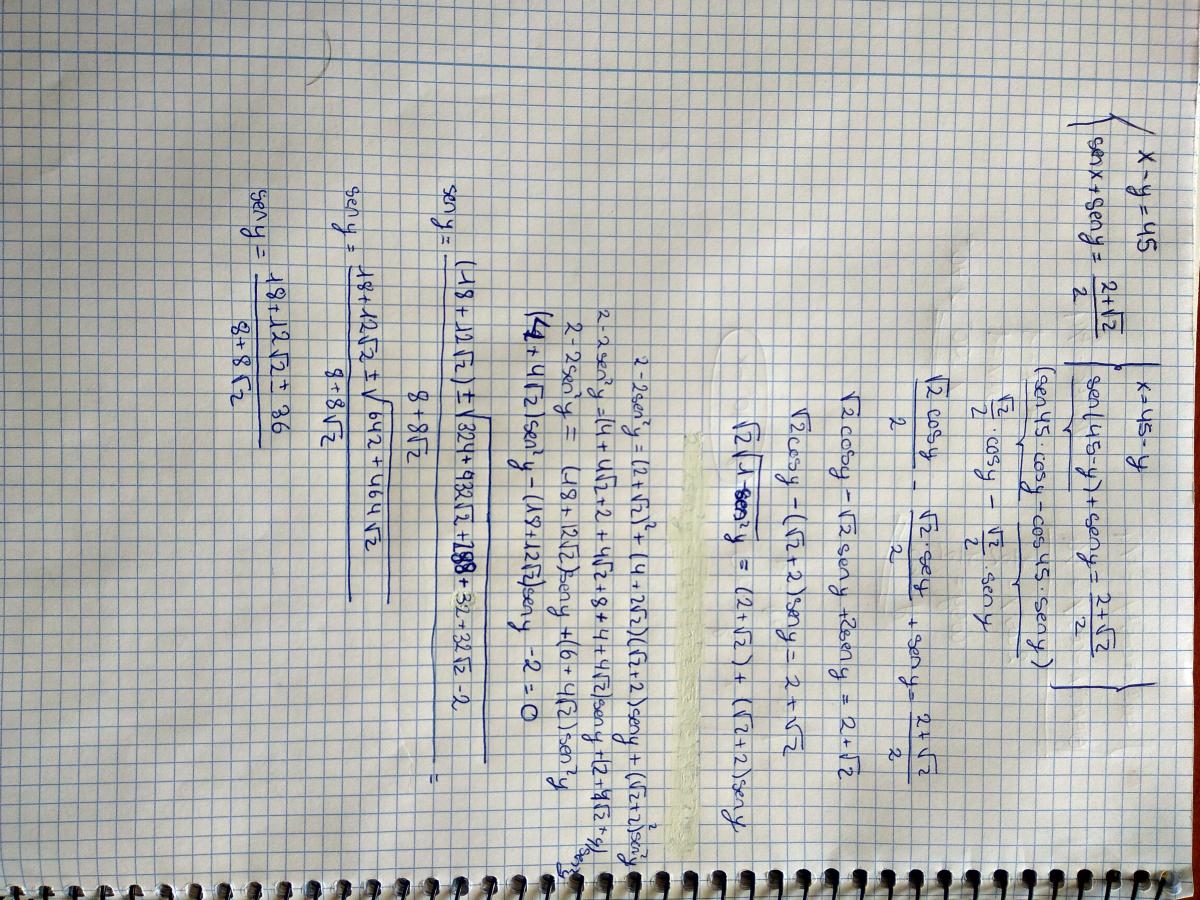 x - y = 45
sen x + sen y = (2+√2)/2
x = 45 - y
sen(45-y) + sen y = (2+√2)/2
(sen 45 · cos y - cos 45 · sen y)
√2/2 · cos y - √2/2 · sen y
√2 cos y/2 - √2 · sey/2 + sen y = (2+√2)/2
√2 cos y - √2 sen y + 2 sen y = 2+√2
√2 cos y - (√2+2) sen y = 2+√2
√2 √(1-sen²y) = (2+√2) + (√2+2) sen y
2-2sen²y = (2+√2)² + (4+2√2)(√2+2) sen y + (√2+2)² sen²y
2-2sen²y = (4+4√2+2+4√2+8+4+4√2) sen y + (2+4√2+4) sen²y
2-2sen²y = (18+12√2) sen y + (6+4√2) sen²y
(4+4√2) sen²y - (18+12√2) sen y - 2 = 0
sen y = ((18+12√2) ± √(324+432√2+288+32+32√2-2))/(8+8√2) =
sen y = (18+12√2 ± √(642+464√2))/(8+8√2)
sen y = (18+12√2 ± 36)/(8+8√2)